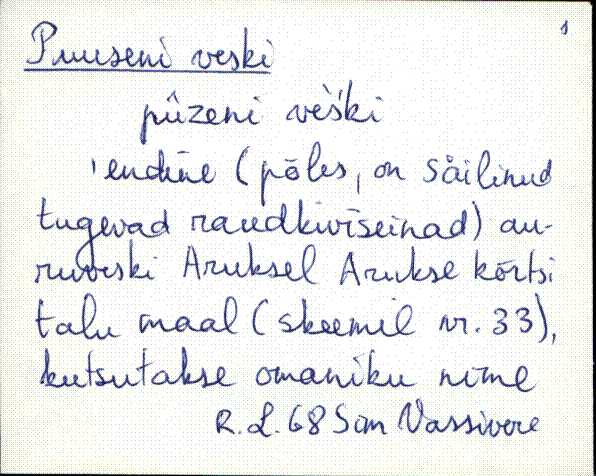 1
Puuseni veski
pūzeni vèški
'endine (põles, on säilinud
tugevad raudkiviseinad) au-
ruveski Aruksel Arukse kõrtsi
talu maal (skeemil nr. 33),
kutsutakse omaniku nime
R.L. 68 Sim Vassivere